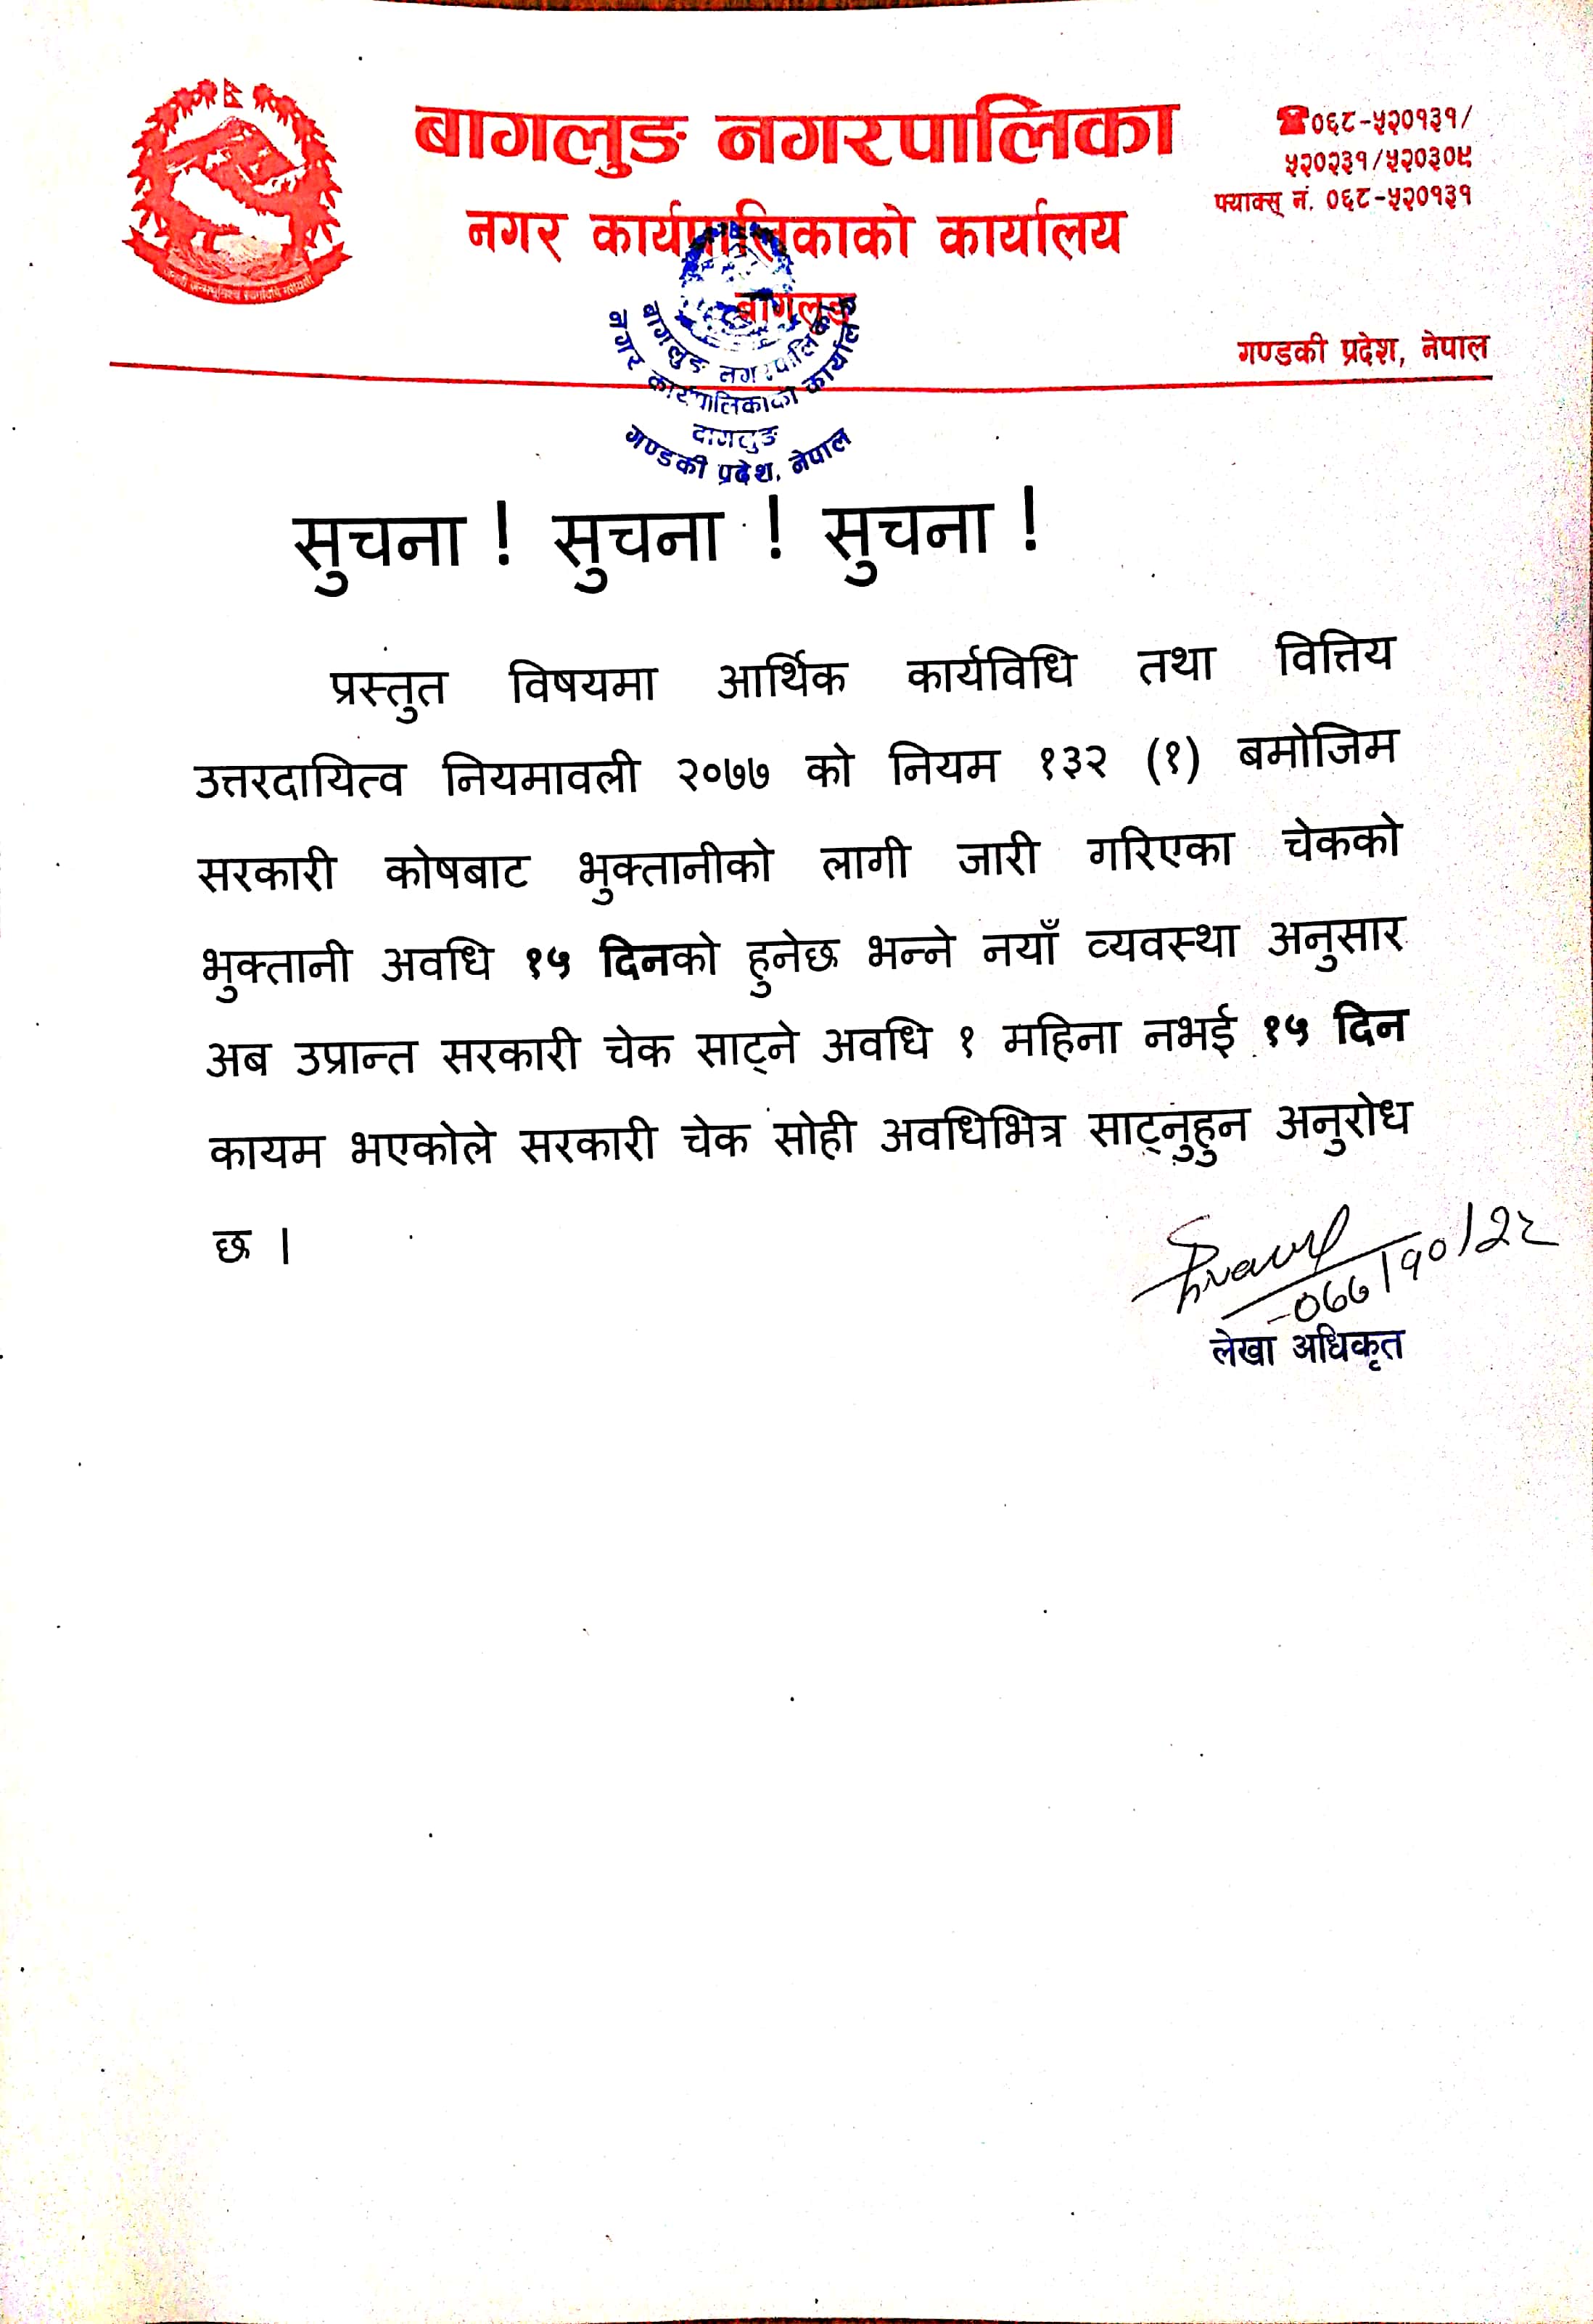 बागलुङ नगरपालिका
नगर कार्यपालिकाको कार्यालय
बागलुङ
☎०६८-५२०१३१/
५२०२३१/५२०३०५
फ्याक्स् नं. ०६८-५२०१३१
गण्डकी प्रदेश, नेपाल
बागलुङ नगरपालिका
नगर कार्यपालिकाको कार्यालय
बागलुङ
गण्डकी प्रदेश, नेपाल
सुचना ! सुचना ! सुचना !
प्रस्तुत विषयमा आर्थिक कार्यविधि तथा वित्तिय
उत्तरदायित्व नियमावली २०७७ को नियम १३२ (१) बमोजिम
सरकारी कोषबाट भुक्तानीको लागी जारी गरिएका चेकको
भुक्तानी अवधि १५ दिनको हुनेछ भन्ने नयाँ व्यवस्था अनुसार
अब उप्रान्त सरकारी चेक साट्ने अवधि १ महिना नभई १५ दिन
कायम भएकोले सरकारी चेक सोही अवधिभित्र साट्नुहुन अनुरोध
छ ।
०७७/१०/२८
लेखा अधिकृत